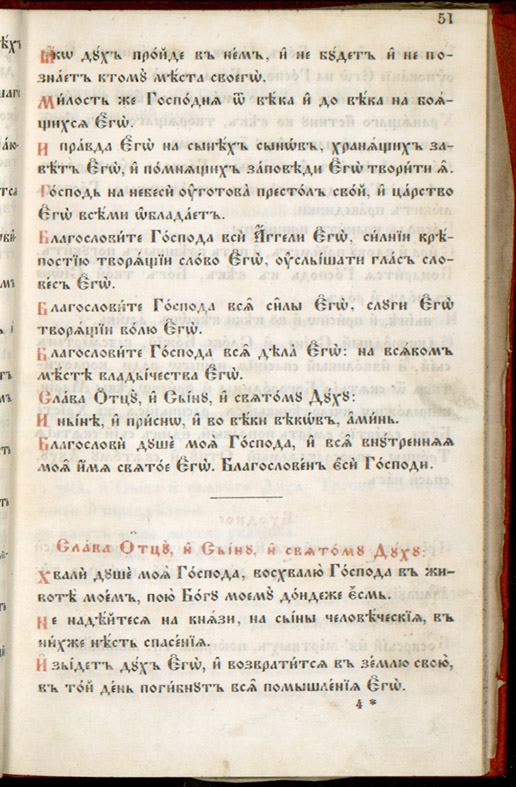 51
Ꙗ҆́кѡ дꙋ́хъ про́йде въ не́мъ, и҆ не бꙋ́детъ и҆ не по-
зна́етъ ктомꙋ̀ мѣ́ста своегѡ̀.
Ми́лость же Госпо́дня ѿ вѣ́ка и҆ до вѣ́ка на боѧ́-
щихсѧ Є҆гѡ̀.
И҆ пра́вда Є҆гѡ̀ на сынѣ́хъ сынѡ́въ, хранѧ́щихъ за-
вѣ́тъ Є҆гѡ̀, и҆ по́мнѧщихъ за́повѣди Є҆гѡ̀ твори́ти ѧ҆̀.
Госпо́дь на небесѝ оу҆гото́ва престо́лъ сво́й, и҆ ца́рство
Є҆гѡ̀ всѣ́ми ѡ҆блада́етъ.
Благослови́те Го́спода всѝ А҆́ггели Є҆гѡ̀, си́лнїи крѣ́-
постїю творѧ́щїи сло́во Є҆гѡ̀, оу҆слы́шати гла́съ сло-
ве́съ Є҆гѡ̀.
Благослови́те Го́спода всѧ̑ си̑лы Є҆гѡ̀, слꙋги̑ Є҆гѡ̀
творѧ́щїи во́лю Є҆гѡ̀.
Благослови́те Го́спода всѧ̑ дѣла̀ Є҆гѡ̀: на всѧ́комъ
мѣ́стѣ влады́чества Є҆гѡ̀.
Сла́ва Ѻ҆тцꙋ̀, и҆ Сы́нꙋ, и҆ свято́мꙋ Дꙋ́хꙋ:
И҆ ны́нѣ, и҆ при́снѡ, и҆ во вѣ́ки вѣкѡ́въ, а҆ми́нь.
Благословѝ дꙋшѐ моѧ̀ Го́спода, и҆ всѧ̑ внꙋ́треннѧѧ
моѧ̑ и҆́мѧ свято́е Є҆гѡ̀. Благослове́нъ є҆сѝ Го́споди.
Сла́ва Ѻ҆тцꙋ̀, и҆ Сы́нꙋ, и҆ свято́мꙋ Дꙋ́хꙋ:
Хвалѝ дꙋшѐ моѧ̀ Го́спода, восхвалю̀ Го́спода въ жи-
вотѣ̀ мое́мъ, пою̀ Бо́гꙋ моемꙋ̀ до́ндеже є҆́смь.
Не надѣ́йтесѧ на кнѧ́зи, на сы́ны человѣ́ческїѧ, въ
ни́хже нѣ́сть спасе́нїѧ.
И҆зы́детъ дꙋ́хъ Є҆гѡ̀, и҆ возврати́тсѧ въ зе́млю свою̀,
въ то́й де́нь поги́бнꙋтъ всѧ̑ помышле́нїѧ Є҆гѡ̀.
4 *